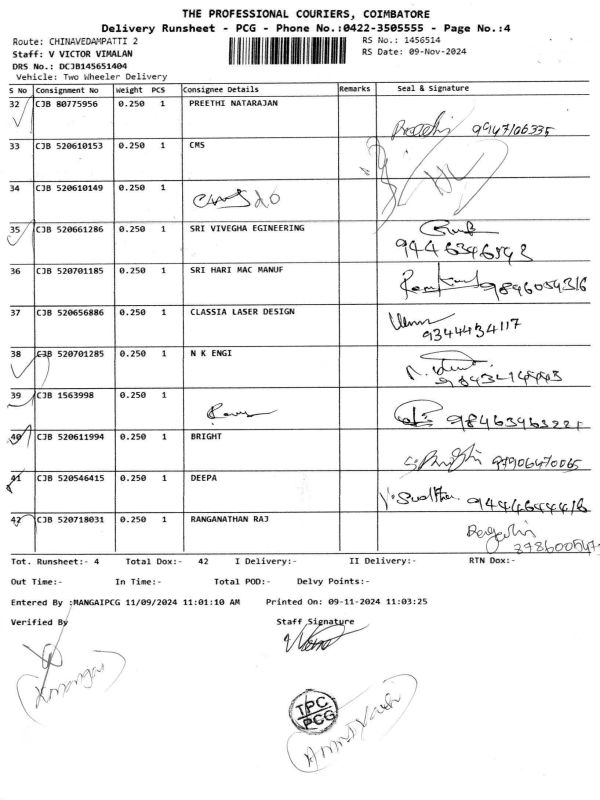 THE PROFESSIONAL COURIERS, COIMBATORE
Delivery Runsheet - PCG - Phone No.:0422-3505555 - Page No.:4
Route: CHINAVEDAMPATTI 2 RS No.: 1456514
Staff: V VICTOR VIMALAN RS Date: 09-Nov-2024
DRS No.: DCJB145651404
Vehicle: Two Wheeler Delivery
S No Consignment No Weight PCS Consignee Details Remarks Seal & Signature
32 CJB 80775956 0.250 1 PREETHI NATARAJAN
Preethi
33 CJB 520610153 0.250 1 CMS
34 CJB 520610149 0.250 1
35 CJB 520661286 0.250 1 SRI VIVEGHA EGINEERING
9446346543
36 CJB 520701185 0.250 1 SRI HARI MAC MANUF
9846054316
37 CJB 520656886 0.250 1 CLASSIA LASER DESIGN
9344434117
38 CJB 520701285 0.250 1 N K ENGI
39 CJB 1563998 0.250 1
98463463221
40 CJB 520611994 0.250 1 BRIGHT
41 CJB 520546415 0.250 1 DEEPA
42 CJB 520718031 0.250 1 RANGANATHAN RAJ
Tot. Runsheet:- 4 Total Dox:- 42 I Delivery:- II Delivery:- RTN Dox:-
Out Time:- In Time:- Total POD:- Delvy Points:-
Entered By :MANGAIPCG 11/09/2024 11:01:10 AM Printed On: 09-11-2024 11:03:25
Verified By Staff Signature
TPC
PCG